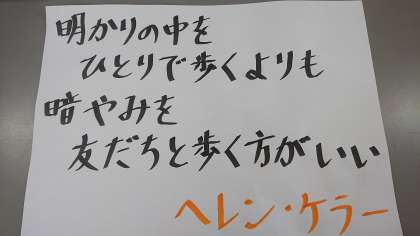 明かりの中を
ひとりで歩くよりも
暗やみを
友だちと歩く方がいい
ヘレン・ケラー